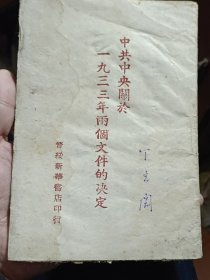 中共中央關於
一九三三年兩個文件的決定
晋綏新華書店印行